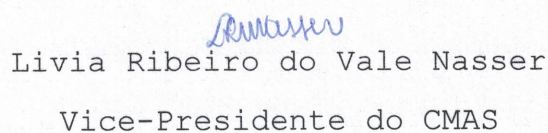 Livia Ribeiro do Vale Nasser
Vice-Presidente do CMAS